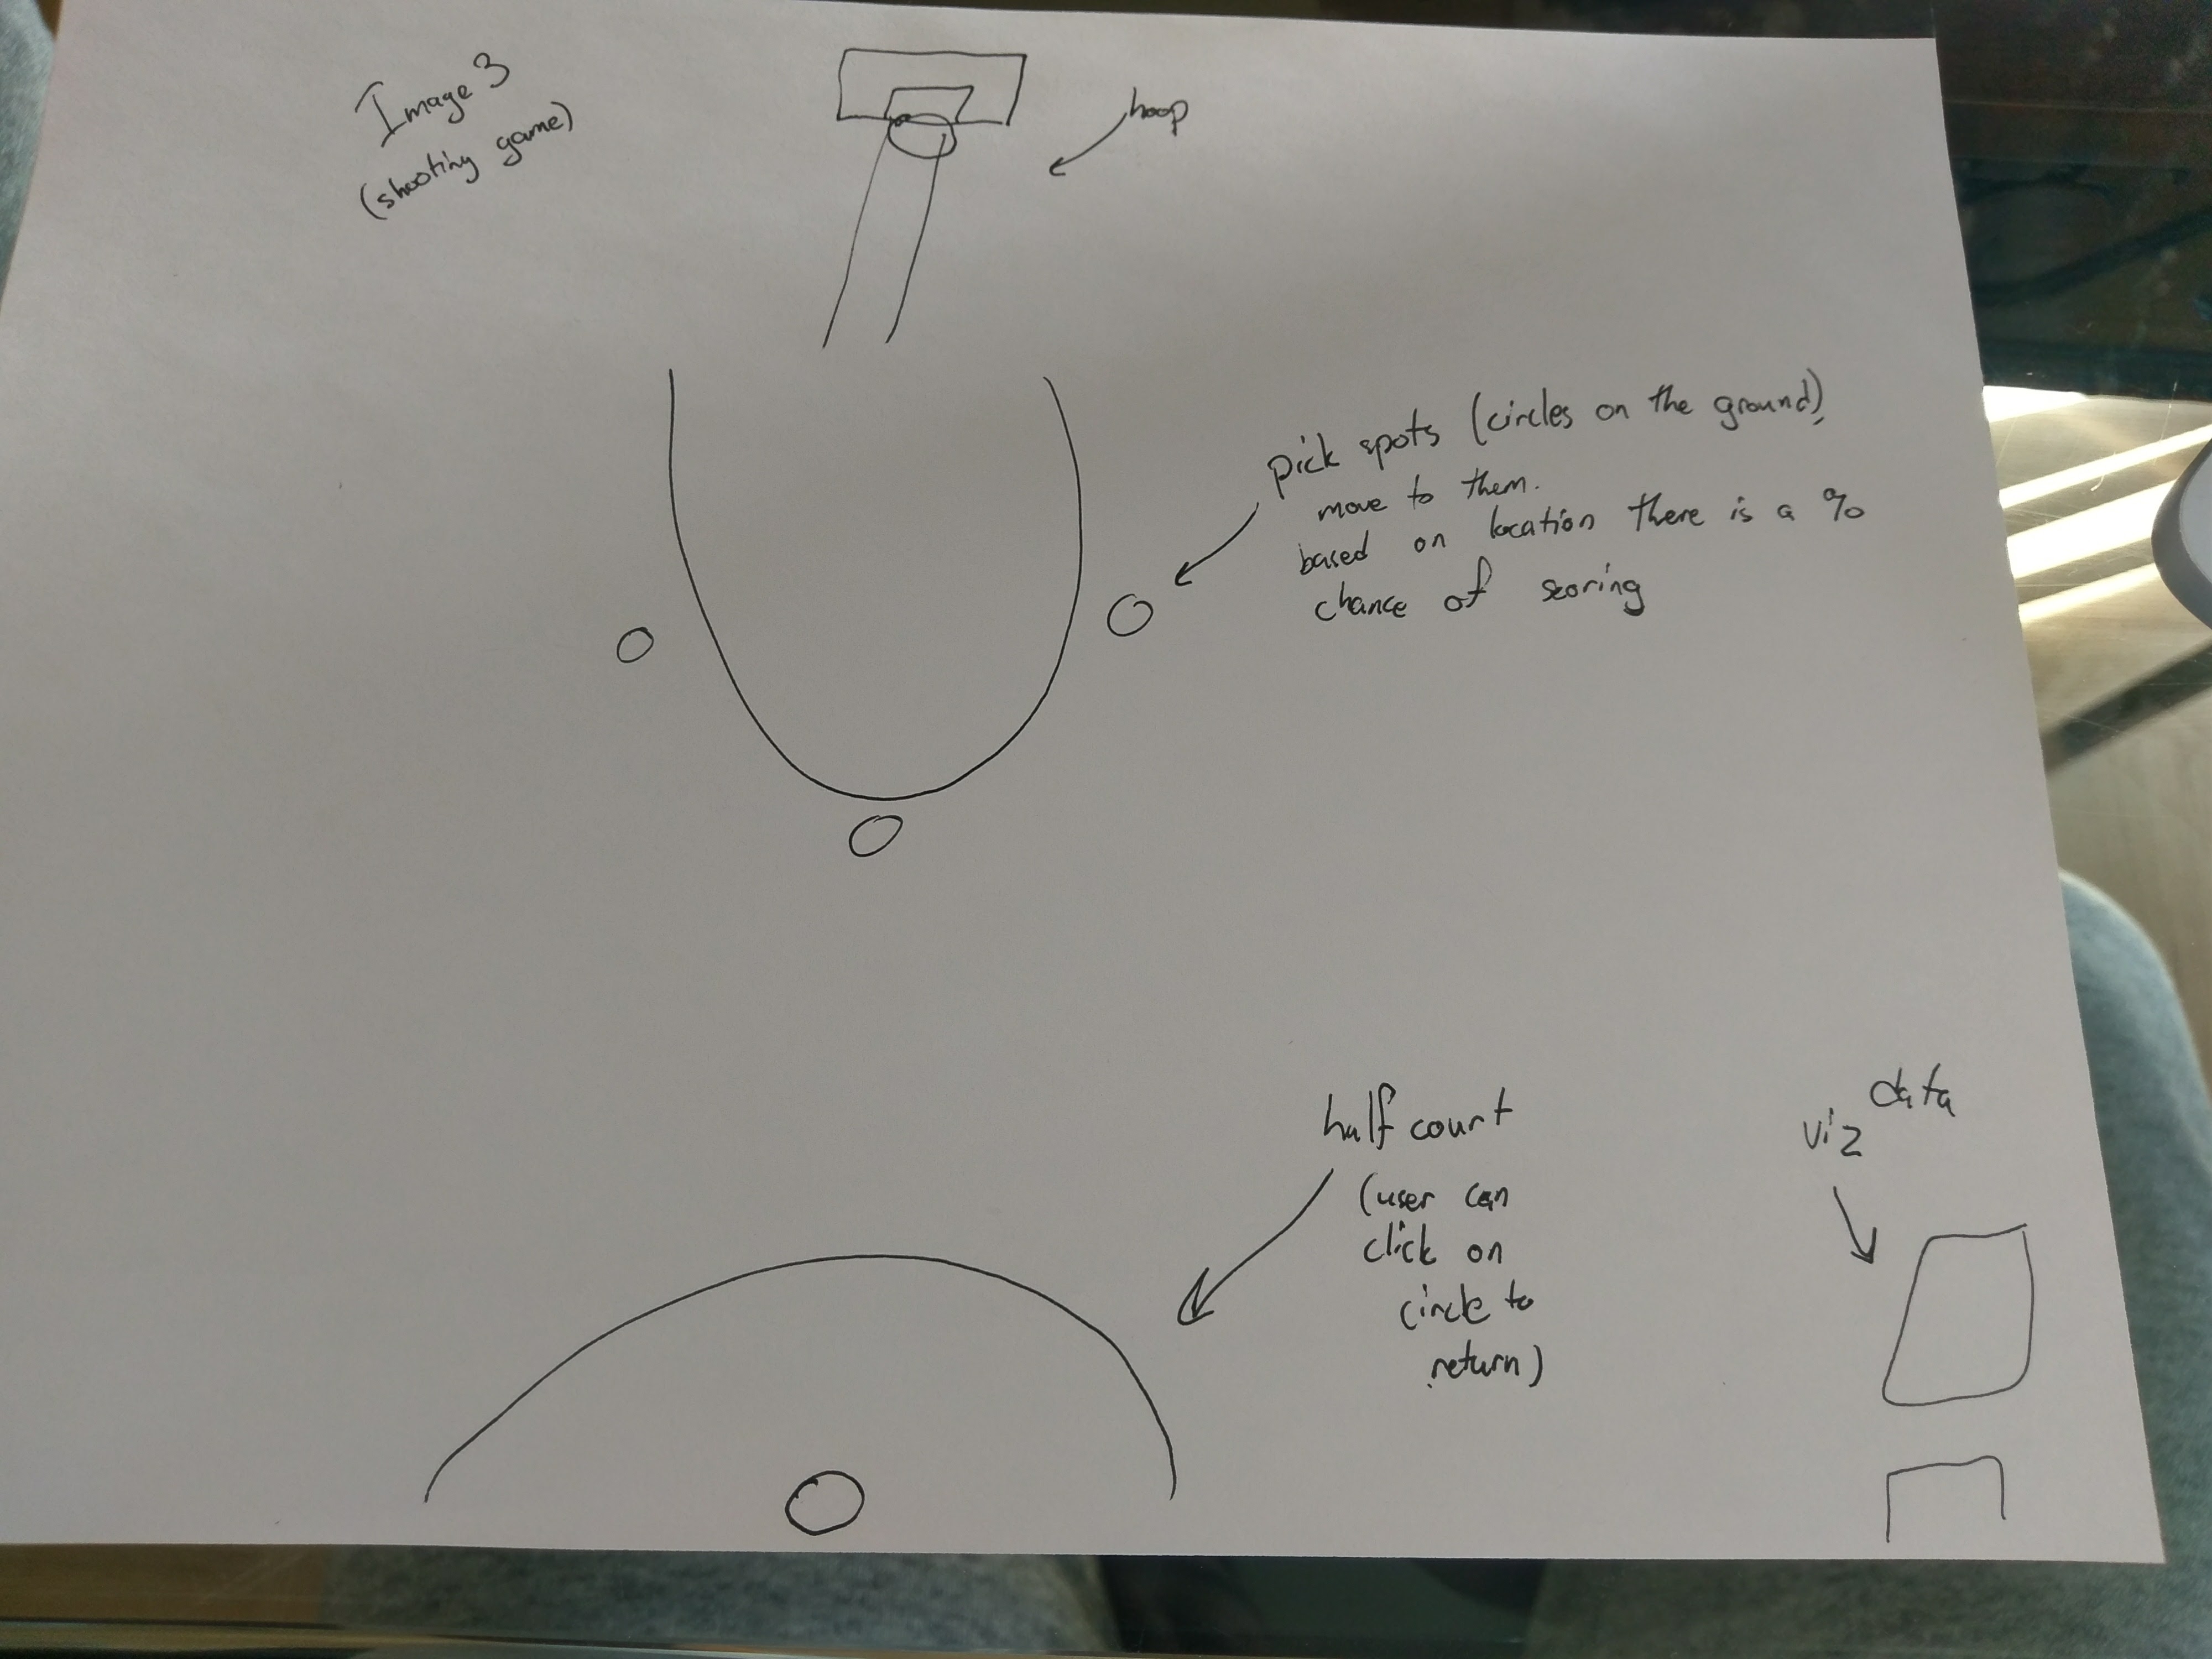 Image 3
(shooting game)
hoop
pick spots (circles on the ground),
move to them.
based on location there is a %
chance of scoring
half court
(user can
click on
circle to
return)
data
viz